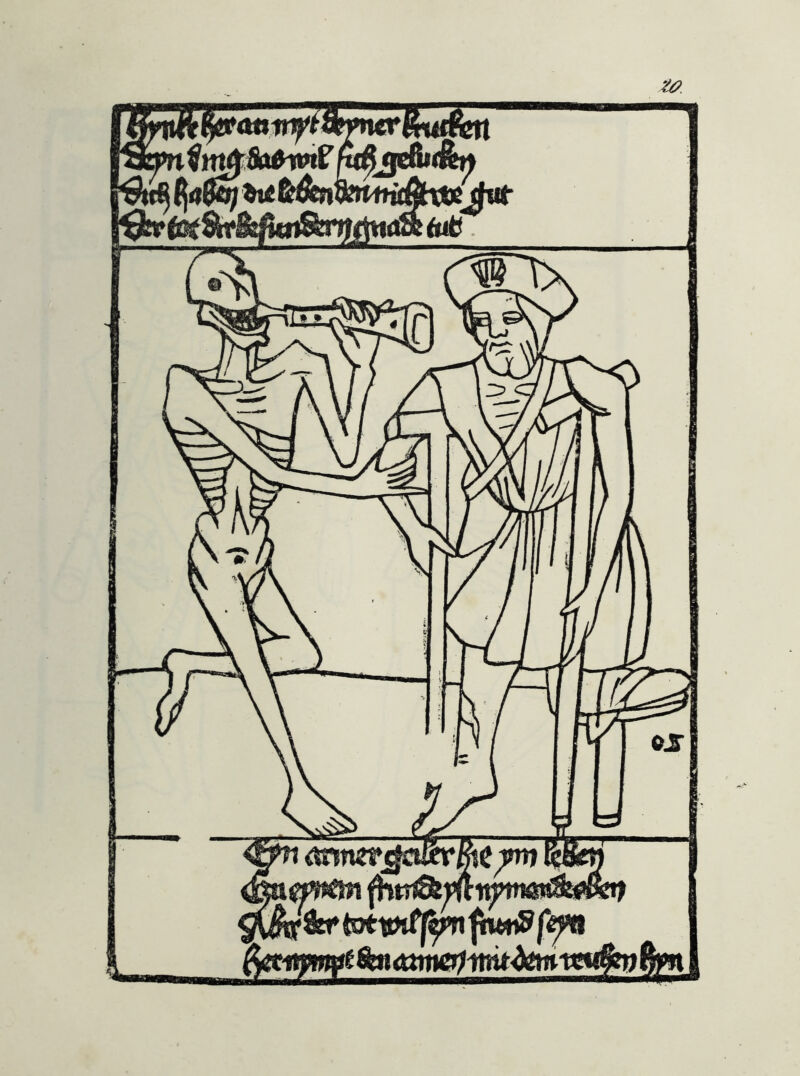 20.
Hynkt her an myt deyner krucken
Deyn ding das wil sich gelucken
Dich haben die lebenden nicht vor gut
Der tot dir besundern gnade tut
Eyn armer hie ym leben
Czu eynem frunde yst nymande eben
Aber der tot wil seyn frund seyn
Her nympt den armen mit dem reychen hyn